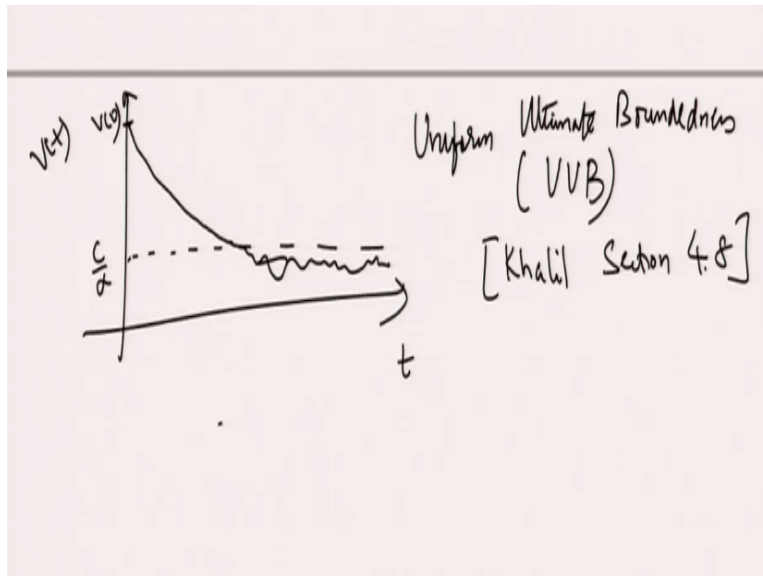 V(t)
V(0)
Uniform Ultimate Boundedness
(UUB)
[Khalil Section 4.8]
c
α
t